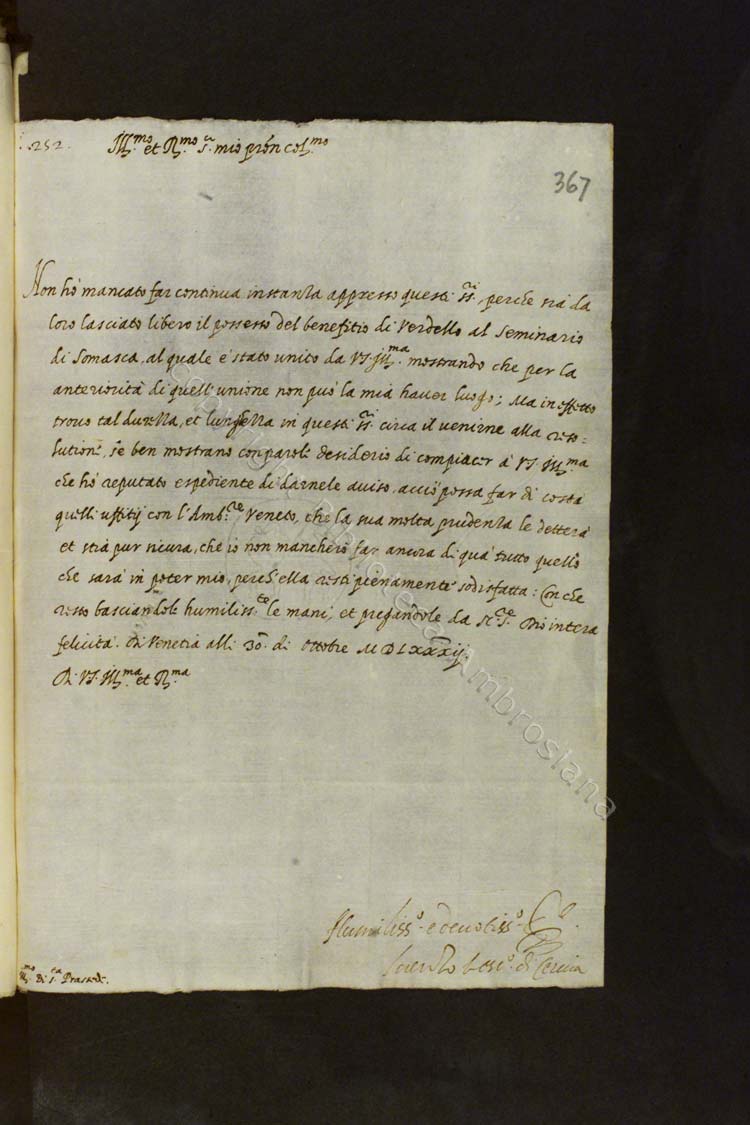 .252.
Ill.mo et R.mo S.r mio p̃rõn col.mo
367
Non hò mancato far continua instanza appresso questi SS.ri, perche sia da
loro lasciato libero il possesso del benefitio di Verdello al Seminario
di Somasca, al quale è stato unito da VS. Ill.ma mostrando che per la
anteriorità di quell'unione non può la mia haver luogo; Ma in effetto
trovo tal durezza, et lunghezza in questi SS.ri circa il venirne alla reso-
lutione, se ben mostrano con parole desiderio di compiacer à VS. Ill.ma
che hò reputato espediente di darnele aviso, acciò possa far di costà
quelli uffitij con l'Amb.re Veneto, che la sua molta prudenza le detterà
et stia pur sicura, che io non mancherò far ancora di quà tutto quello
che sarà in poter mio, perch'ella resti pienamente sodisfatta: Con che
resto basciandole humiliss.te le mani, et pregandole da N.ro S.re Dio intera
felicità. Di Venetia alli 30. di Ottobre MDLXXXij.
Di VS. Ill.ma et R.ma
Humiliss.o e devotiss.o
Lorenzo Vesc.o di Cervia
Ill.mo di S.ta Prassede.
Copyright Biblioteca Ambrosiana